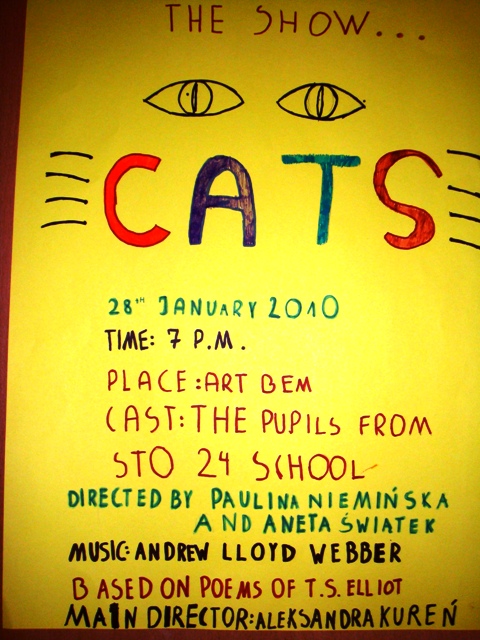 THE SHOW...
CATS
28TH JANUARY 2010
TIME: 7 P.M.
PLACE:ART BEM
CAST:THE PUPILS FROM
STO 24 SCHOOL
DIRECTED BY PAULINA NIEMIŃSKA
AND ANETA ŚWIATEK
MUSIC: ANDREW LLOYD WEBBER
BASED ON POEMS OF T.S. ELLIOT
MAIN DIRECTOR:ALEKSANDRA KUREŃ